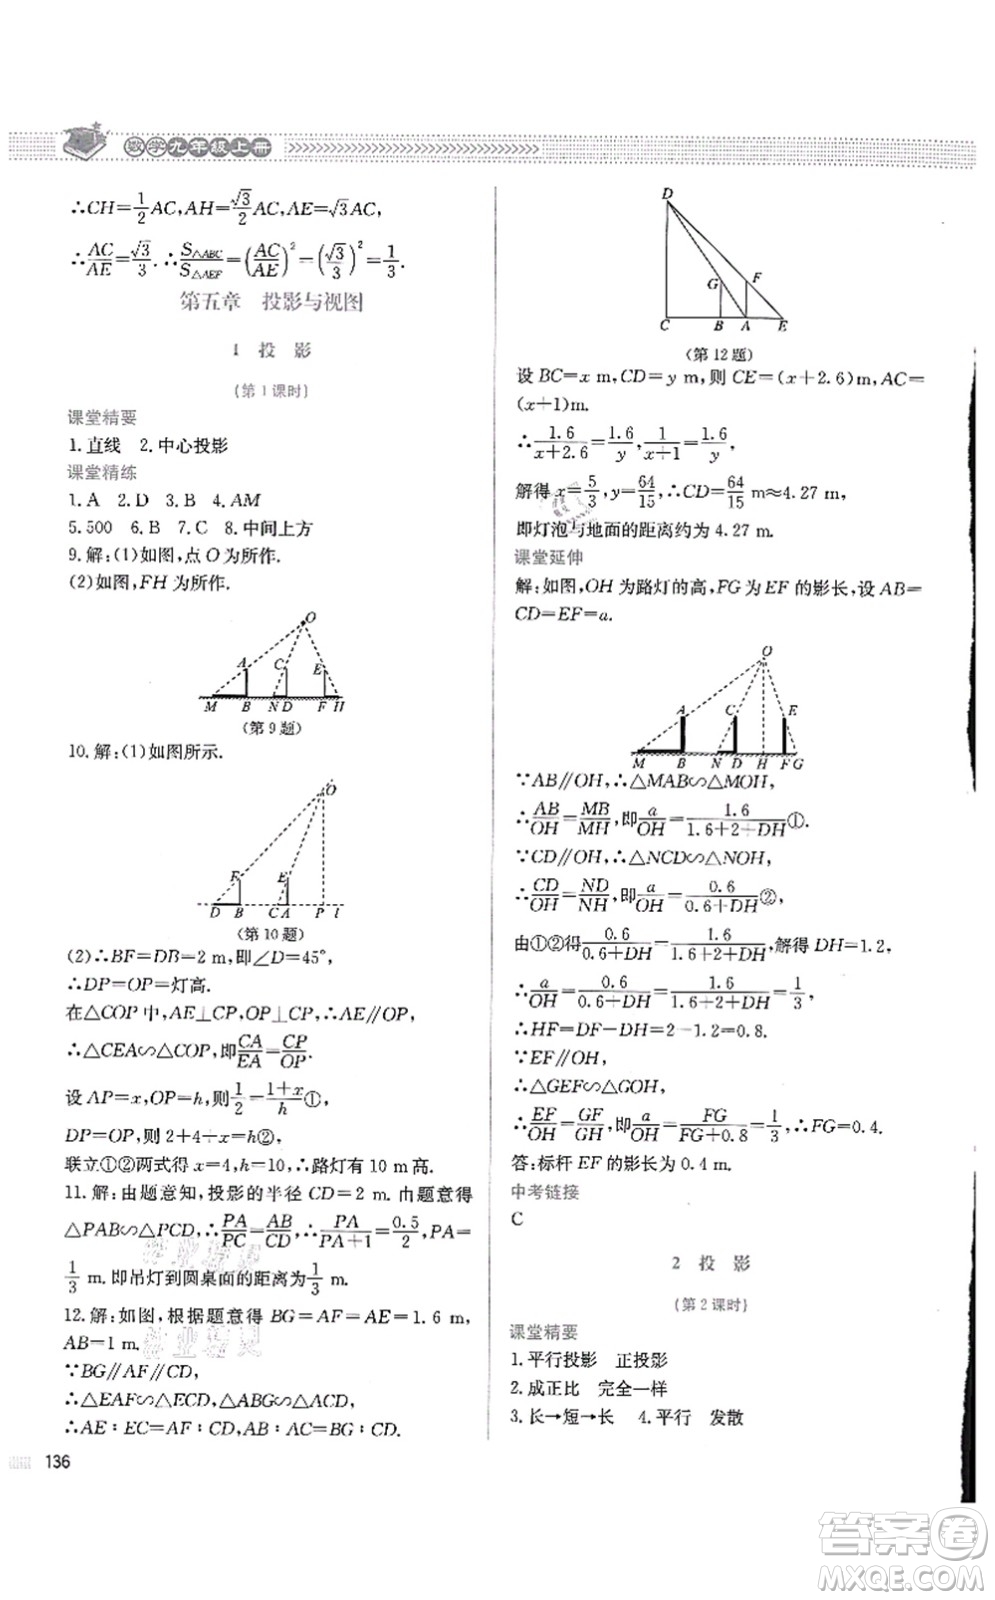 数学九年级上册
∴CH=1/2 AC,AH=√3/2 AC,AE=√3AC,
∴AC/AE=√3/3. ∴S△ABC/S△AEF=(AC/AE)²=(√3/3)²=1/3.
第五章 投影与视图
1 投 影
(第1课时)
课堂精要
1.直线 2.中心投影
课堂精练
1.A 2.D 3.B 4.AM
5.500 6.B 7.C 8.中间上方
9.解:(1)如图,点O为所作.
(2)如图,FH为所作.
O
A C E
M B N D F H
(第9题)
10.解:(1)如图所示.
O
F E
D B C A P l
(第10题)
(2)∵BF=DB=2 m,即∠D=45°,
∴DP=OP=灯高.
在△COP中,AE⊥CP,OP⊥CP,∴AE∥OP.
∴△CEA∽△COP,即CA/EA=CP/OP.
设AP=x,OP=h,则1/2=(1+x)/h①,
DP=OP,则2+4+x=h②,
联立①②两式得x=4,h=10,∴路灯有10 m高.
11.解:由题意知,投影的半径CD=2 m.由题意得
△PAB∽△PCD,∴PA/PC=AB/CD,∴PA/(PA+1)=0.5/2,PA=
1/3 m.即吊灯到圆桌面的距离为1/3 m.
12.解:如图,根据题意得BG=AF=AE=1.6 m,
AB=1 m.
∵BG∥AF∥CD,
∴△EAF∽△ECD,△ABG∽△ACD,
∴AE∶EC=AF∶CD,AB∶AC=BG∶CD.
136
D
G F
C B A E
(第12题)
设BC=x m,CD=y m,则CE=(x+2.6)m,AC=
(x+1)m.
∴1.6/(x+2.6)=1.6/y,1/(x+1)=1.6/y,
解得x=5/3,y=64/15,∴CD=64/15 m≈4.27 m,
即灯泡与地面的距离约为4.27 m.
课堂延伸
解:如图,OH为路灯的高,FG为EF的影长,设AB=
CD=EF=a.
O
A C E
M B N D H F G
∵AB∥OH,∴△MAB∽△MOH,
∴AB/OH=MB/MH,即a/OH=1.6/(1.6+2+DH)①.
∵CD∥OH,∴△NCD∽△NOH,
∴CD/OH=ND/NH,即a/OH=0.6/(0.6+DH)②,
由①②得0.6/(0.6+DH)=1.6/(1.6+2+DH),解得DH=1.2,
∴a/OH=0.6/(0.6+DH)=1.6/(1.6+2+DH)=1/3,
∴HF=DF-DH=2-1.2=0.8.
∵EF∥OH,
∴△GEF∽△GOH,
∴EF/OH=GF/GH,即a/OH=FG/(FG+0.8)=1/3,∴FG=0.4.
答:标杆EF的影长为0.4 m.
中考链接
C
2 投 影
(第2课时)
课堂精要
1.平行投影 正投影
2.成正比 完全一样
3.长→短→长 4.平行 发散
答案卷
MXQE.COM